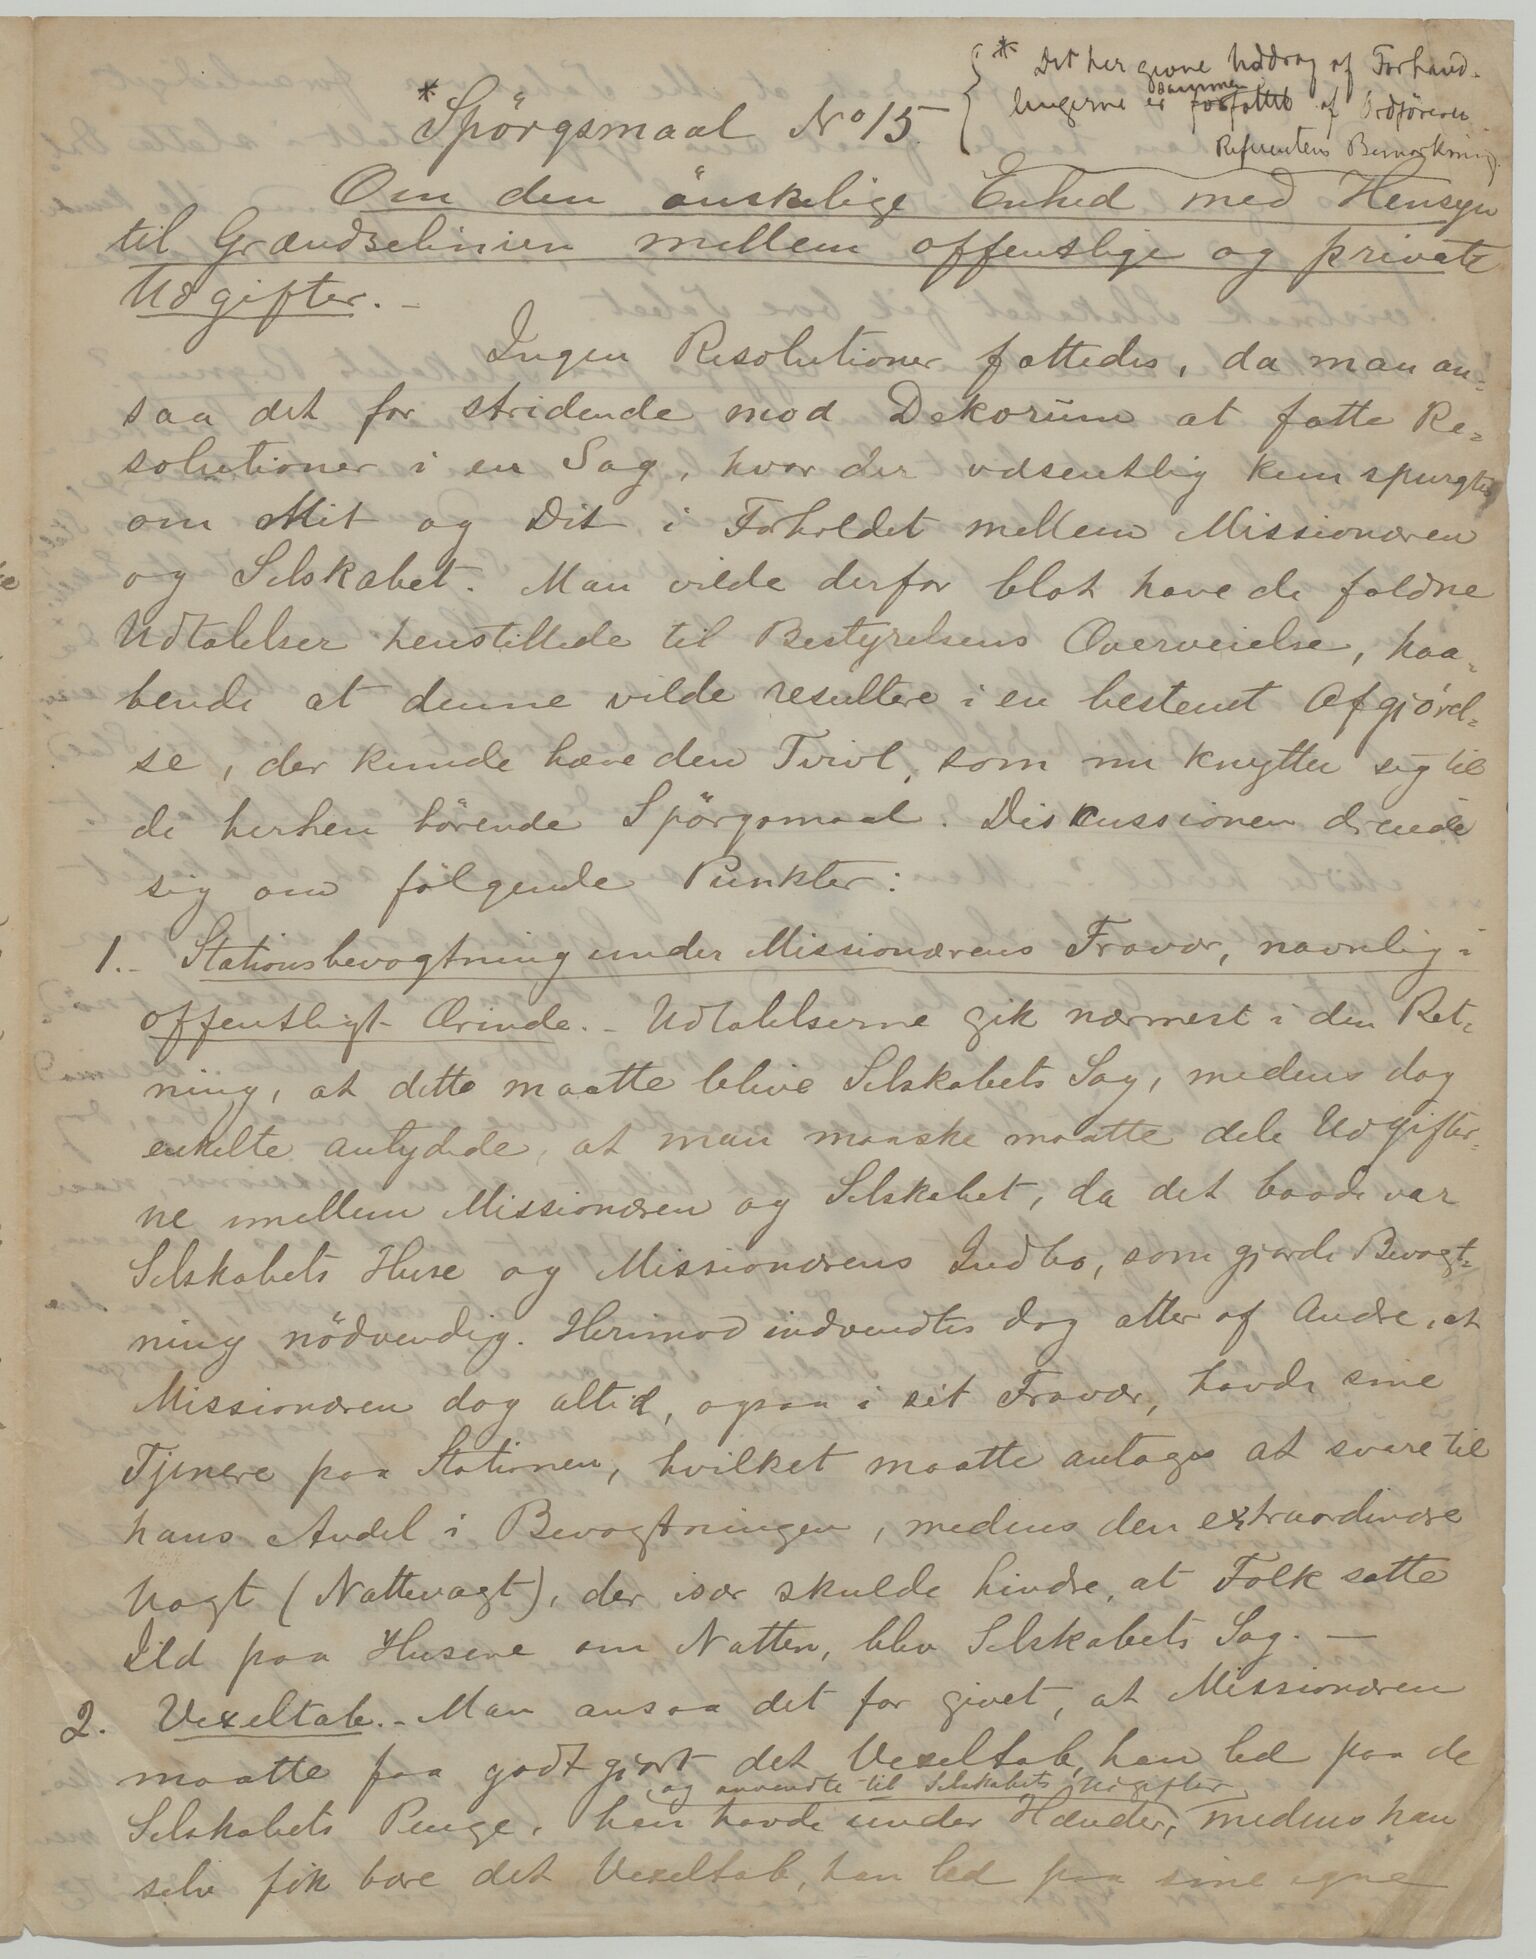 * Det her givne Uddrag af Forhand-
lingerne er sammenfattet af Ordföreren
Referentens Bemærkning.
*Spörgsmaal No 15.
Om den önskelige Enhed med Hensyn
til Grændselinien mellem offentlige og private
Udgifter. -
Ingen Resolutioner fattedes, da man an-
saa det for stridende mod Dekorum at fatte Re-
solutioner i en Sag, hvor der væsentlig kun spurgtes
om Mit og Dit i Forholdet mellem Missionæren
og Selskabet. Man vilde derfor blot have de faldne
Udtalelser henstillede til Bestyrelsens Overveielse, haa-
bende at denne vilde resultere i en bestemt Afgjörel-
se, der kunde hæve den Tvivl, som nu knytter sig til
de herhen hörende Spörgsmaal. Diskussionen dreiede
sig om fölgende Punkter:
1. - Stationsbevogtning under Missionærens Fravær, navnlig i
offentligt Ærinde. - Udtalelserne gik nærmest i den Ret-
ning, at dette maatte blive Selskabets Sag, medens dog
enkelte antydede, at man maaske maatte dele Udgifter-
ne imellem Missionæren og Selskabet, da det baade var
Selskabets Huse og Missionærens Indbo, som gjorde Bevogt-
ning nödvendig. Herimod indvendtes dog atter af Andre, at
Missionæren dog altid, ogsaa i sit Fravær, havde sine
Tjenere paa Stationen, hvilket maatte antages at svare til
hans Andel i Bevogtningen, medens den extraordinære
Vagt (Nattevagt), der især skulde hindre, at Folk satte
Ild paa Husene om Natten, blev Selskabets Sag. -
2. Vexeltab. - Man ansaa det for givet, at Missionæren
maatte faa godtgjort det Vexeltab, han led paa de
og anvendte til Selskabets Udgifter
Selskabets Penge, han havde under Hænder, medens han
selv fik bære det Vexeltab, han led paa sine egne